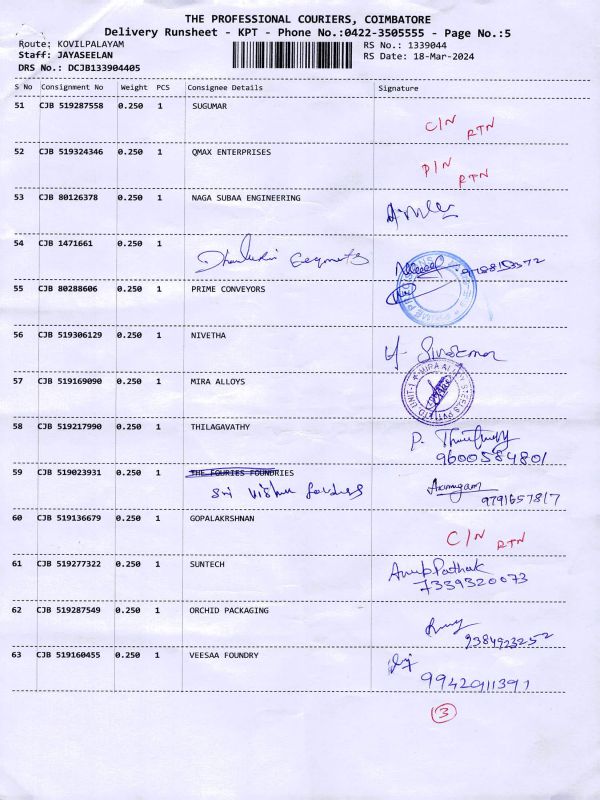 THE PROFESSIONAL COURIERS, COIMBATORE
Delivery Runsheet - KPT - Phone No.:0422-3505555 - Page No.:5
Route: KOVILPALAYAM RS No.: 1339044
Staff: JAYASEELAN RS Date: 18-Mar-2024
DRS No.: DCJB133904405
S No Consignment No Weight PCS Consignee Details Signature
51 CJB 519287558 0.250 1 SUGUMAR
C/N RTN
52 CJB 519324346 0.250 1 QMAX ENTERPRISES
P/N RTN
53 CJB 80126378 0.250 1 NAGA SUBAA ENGINEERING
54 CJB 1471661 0.250 1
55 CJB 80288606 0.250 1 PRIME CONVEYORS
56 CJB 519306129 0.250 1 NIVETHA
57 CJB 519169090 0.250 1 MIRA ALLOYS
58 CJB 519217990 0.250 1 THILAGAVATHY
9600584801
59 CJB 519023931 0.250 1 THE FOURIES FOUNDRIES
Sri Arumugam
9791657817
60 CJB 519136679 0.250 1 GOPALAKRSHNAN
C/N RTN
61 CJB 519277322 0.250 1 SUNTECH
Anup Pathak
7339320073
62 CJB 519287549 0.250 1 ORCHID PACKAGING
9384923252
63 CJB 519160455 0.250 1 VEESAA FOUNDRY
9942011391
3